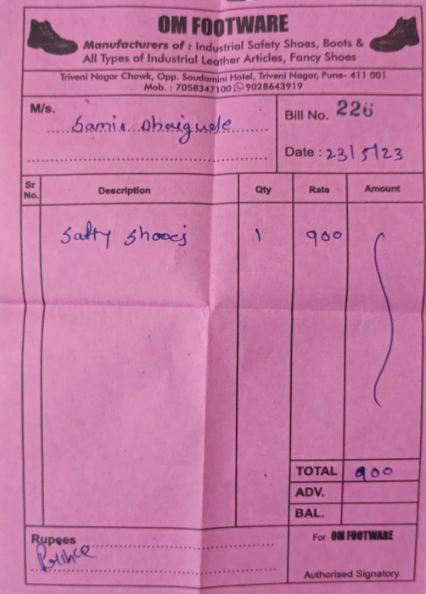 OM FOOTWARE
Manufacturers of : Industrial Safety Shoes, Boots &
All Types of Industrial Leather Articles, Fancy Shoes
Triveni Nagar Chowk, Opp. Soudamini Hotel, Triveni Nagar, Pune- 411 001
Mob. : 7058347100 9028643919
M/s. Samir Dhaigude
Bill No. 226
Date : 23/5/23
Sr No. Description Qty Rate Amount
Safty Shooes 1 900
TOTAL 900
ADV.
BAL.
Rupees
For OM FOOTWARE
Prince
Authorised Signatory